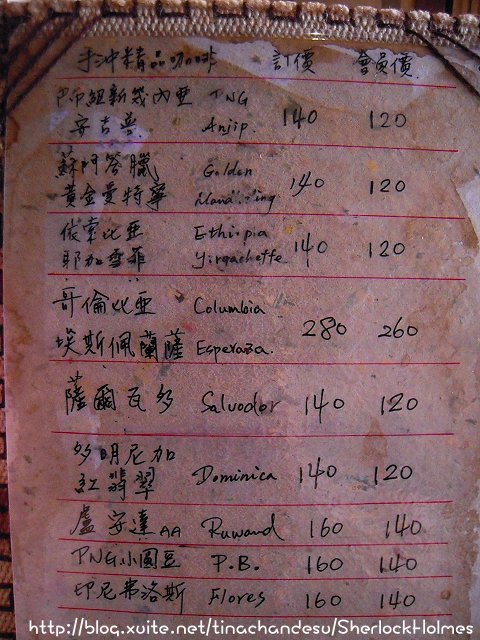 手沖精品咖啡 訂價 會員價
PNG紐新幾內亞 PNG
安吉普 Anjip. 140 120
蘇門答臘 Golden
黃金曼特寧 Mandheling 140 120
依索比亞 Ethiopia
耶加雪菲 Yirgacheffe 140 120
哥倫比亞 Columbia
埃斯佩蘭薩 Esperaza. 280 260
薩爾瓦多 Salvodor 140 120
多明尼加
紅翡翠 Dominica 140 120
盧安達AA Ruwand 160 140
PNG小圓豆 P.B. 160 140
印尼弗洛斯 Flores 160 140
http://blog.xuite.net/tinachandesu/SherlockHolmes